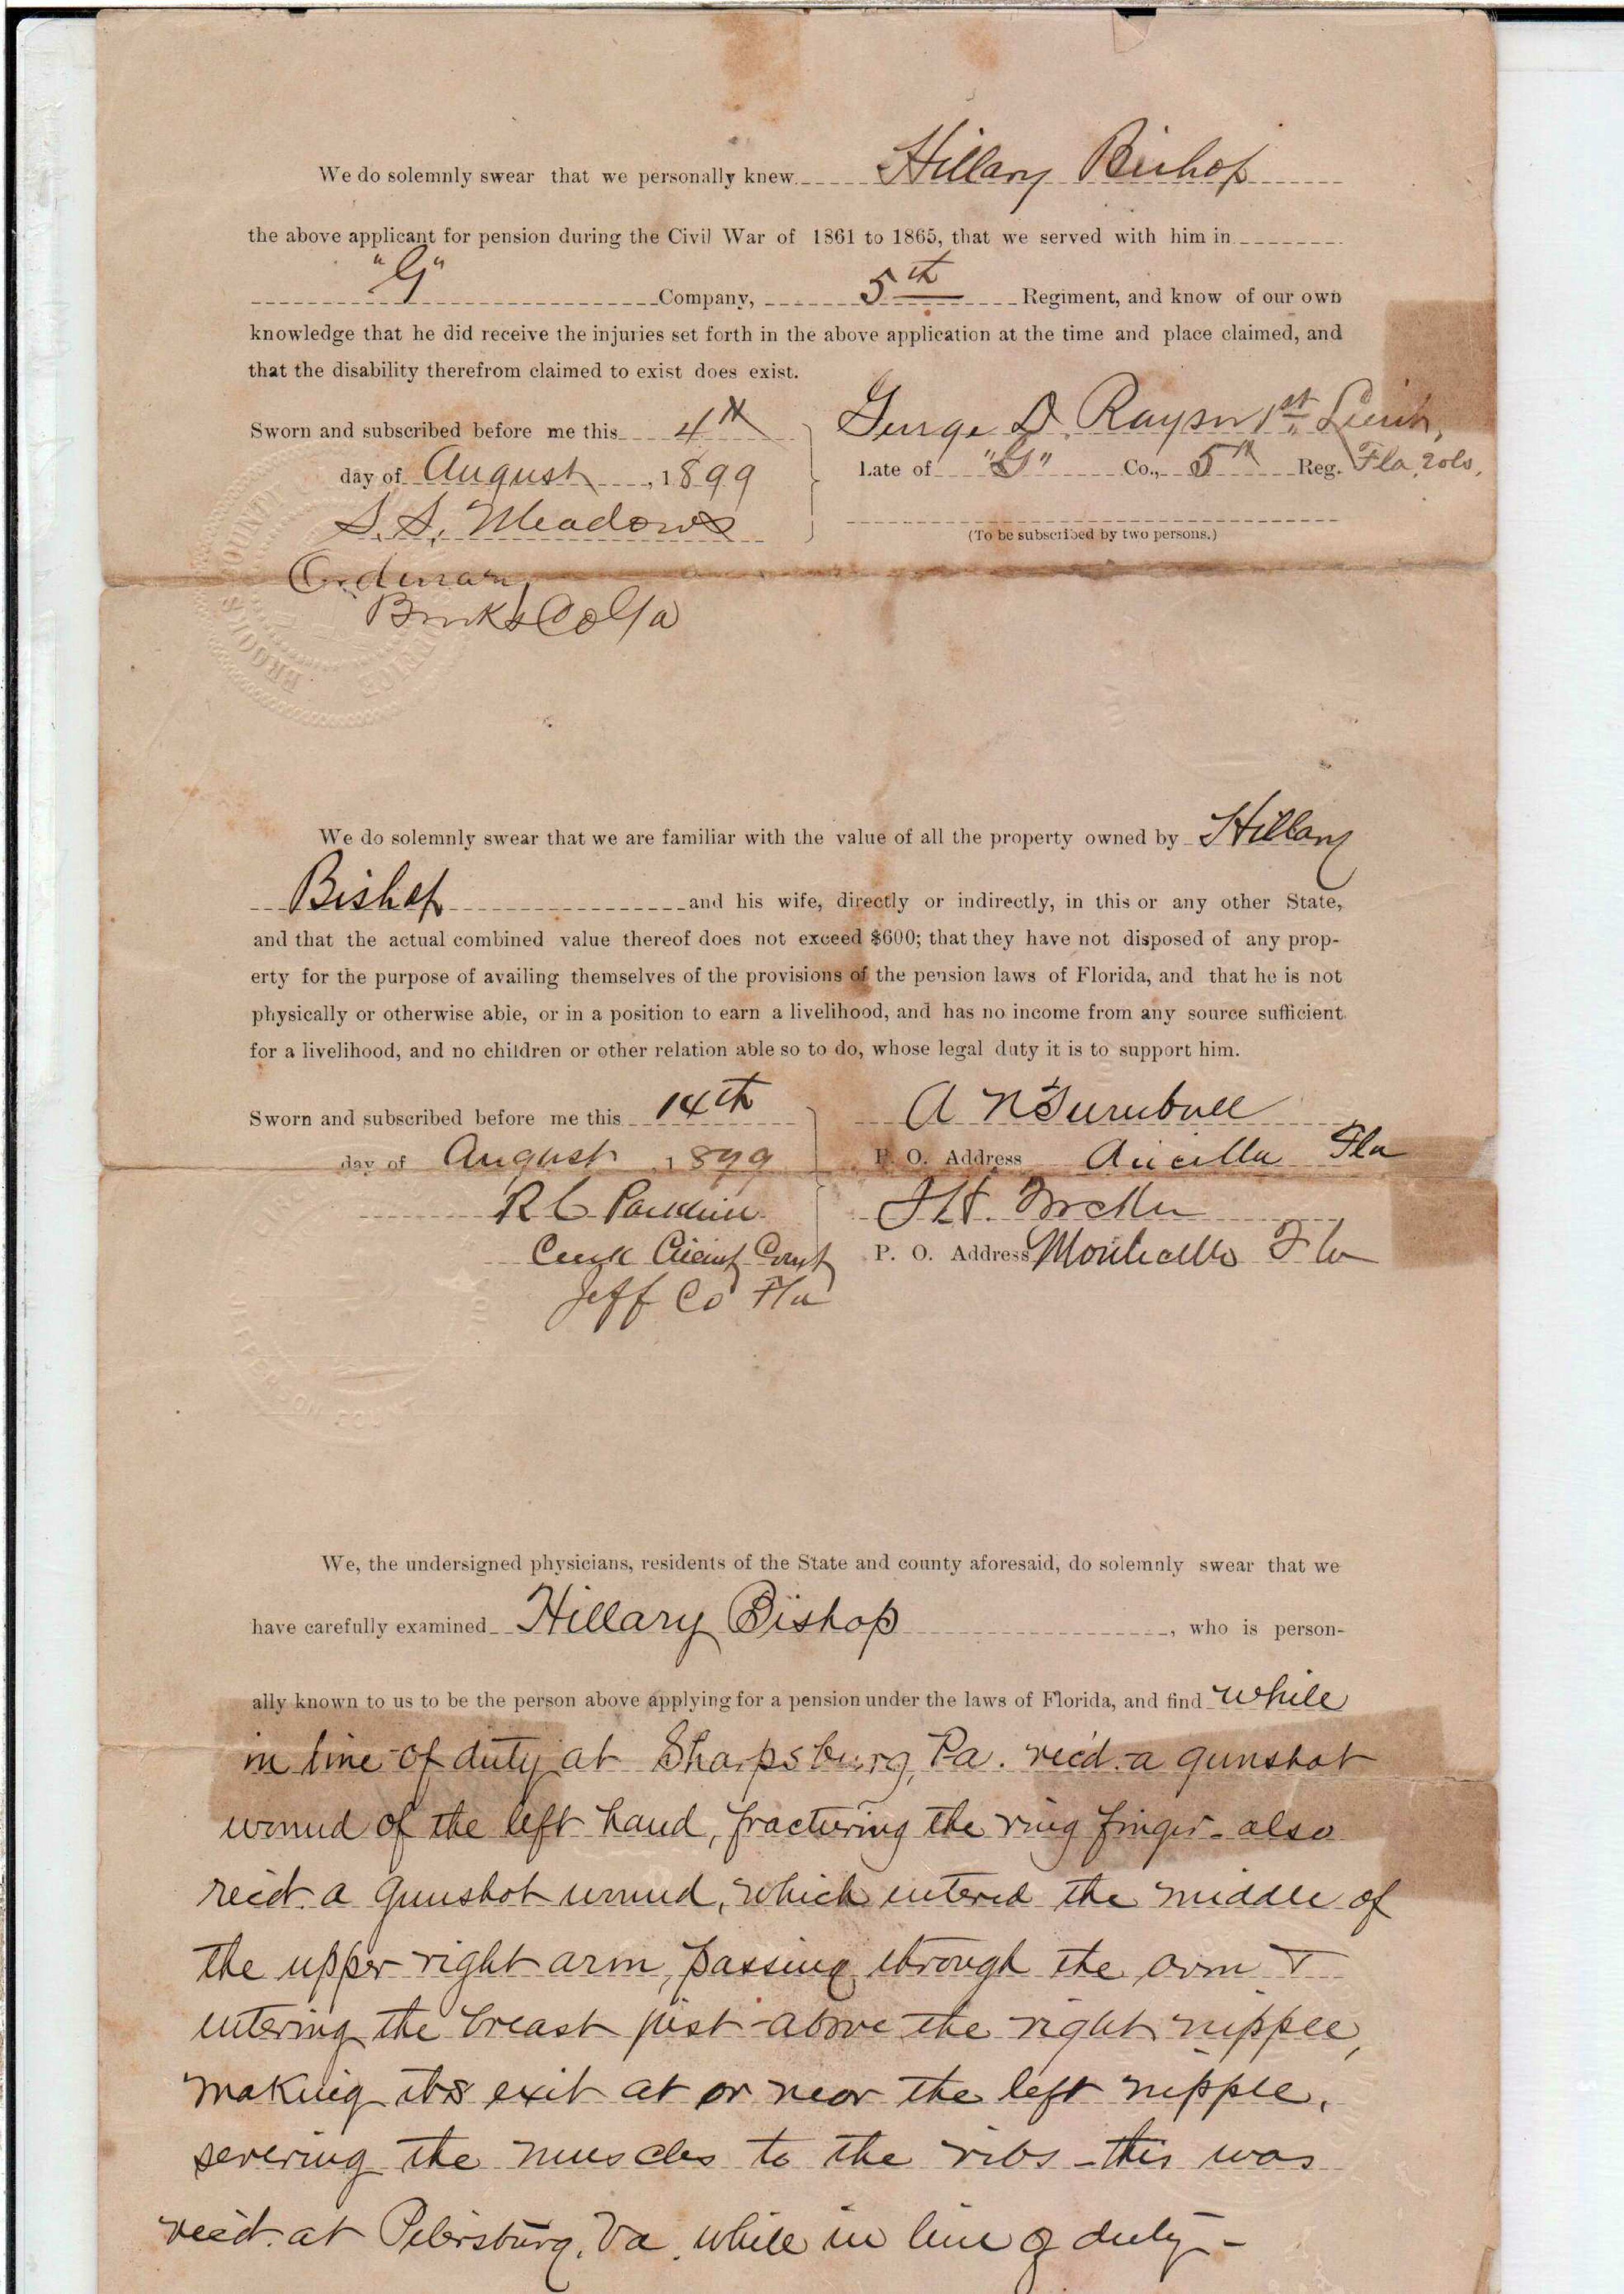 We do solemnly swear that we personally knew Hillary Bishop
the above applicant for pension during the Civil War of 1861 to 1865, that we served with him in
"G" Company, 5th Regiment, and know of our own
knowledge that he did receive the injuries set forth in the above application at the time and place claimed, and
that the disability therefrom claimed to exist does exist.
Sworn and subscribed before me this 4th
day of August, 1899
S. S. Meadows
Ordinary
Brooks Co Ga
George D. Raysor 1st Lieut,
Late of "G" Co., 5th Reg. Fla. Vols.
(To be subscribed by two persons.)
BROOKS COUNTY
We do solemnly swear that we are familiar with the value of all the property owned by Hillary
Bishop and his wife, directly or indirectly, in this or any other State,
and that the actual combined value thereof does not exceed $600; that they have not disposed of any prop-
erty for the purpose of availing themselves of the provisions of the pension laws of Florida, and that he is not
physically or otherwise able, or in a position to earn a livelihood, and has no income from any source sufficient
for a livelihood, and no children or other relation able so to do, whose legal duty it is to support him.
Sworn and subscribed before me this 14th
day of August 1899
R C
Clerk Circuit Court
Jeff Co Fla
A N Turnbull
P. O. Address Aucilla Fla
T. H.
P. O. Address Monticello Fla
JEFFERSON COUNTY
We, the undersigned physicians, residents of the State and county aforesaid, do solemnly swear that we
have carefully examined Hillary Bishop, who is person-
ally known to us to be the person above applying for a pension under the laws of Florida, and find while
in line of duty at Sharpsburg, Pa. rec'd. a gunshot
wound of the left hand, fracturing the ring finger - also
rec'd. a gunshot wound, which entered the middle of
the upper right arm, passing through the arm &
entering the breast just above the right nipple,
making its exit at or near the left nipple,
severing the muscles to the ribs - this was
rec'd. at Petersburg, Va. while in line of duty -